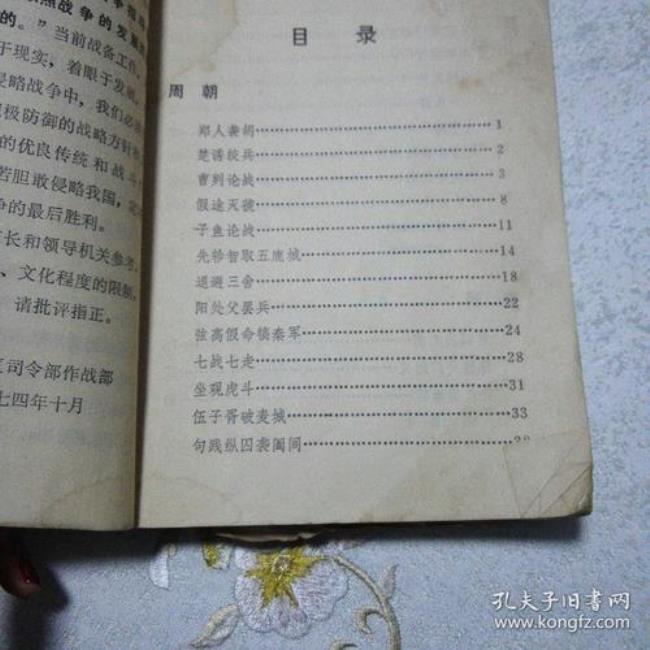 争指
照战争的发展
的。”当前战备工作，
于现实，着眼于发展，
侵略战争中，我们必
极防御的战略方针
的优良传统和战斗
若胆敢侵略我国，
争的最后胜利。
长和领导机关参考。
、文化程度的限制，
请批评指正。
司令部作战部
七四年十月
目 录
周 朝
郑人袭胡……1
楚诱绞兵……2
曹刿论战……3
假途灭虢……8
子鱼论战……11
先轸智取五鹿城……14
退避三舍……18
阳处父罢兵……22
弦高假命犒秦军……24
七战七走……28
坐观虎斗……31
伍子胥破麦城……33
句践纵囚袭阖闾……
孔夫子旧书网
www.kongfz.com